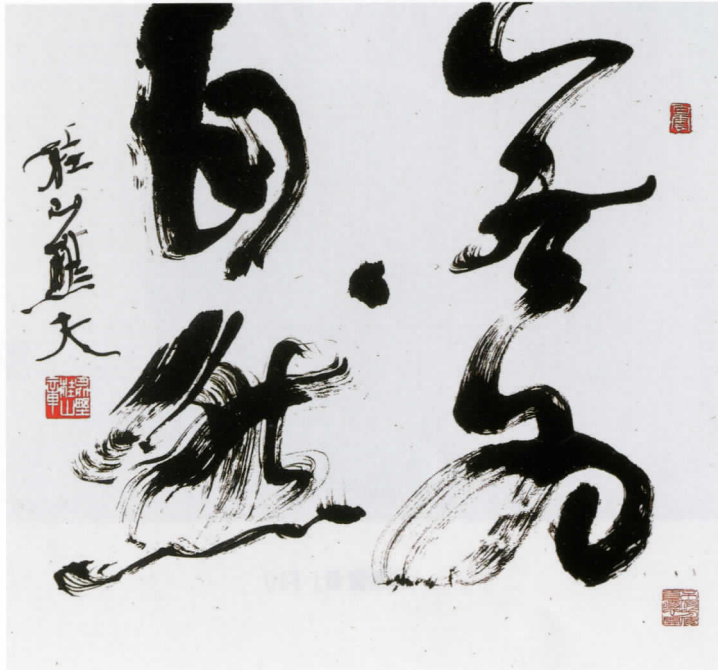 無為
自然
桂山樵夫